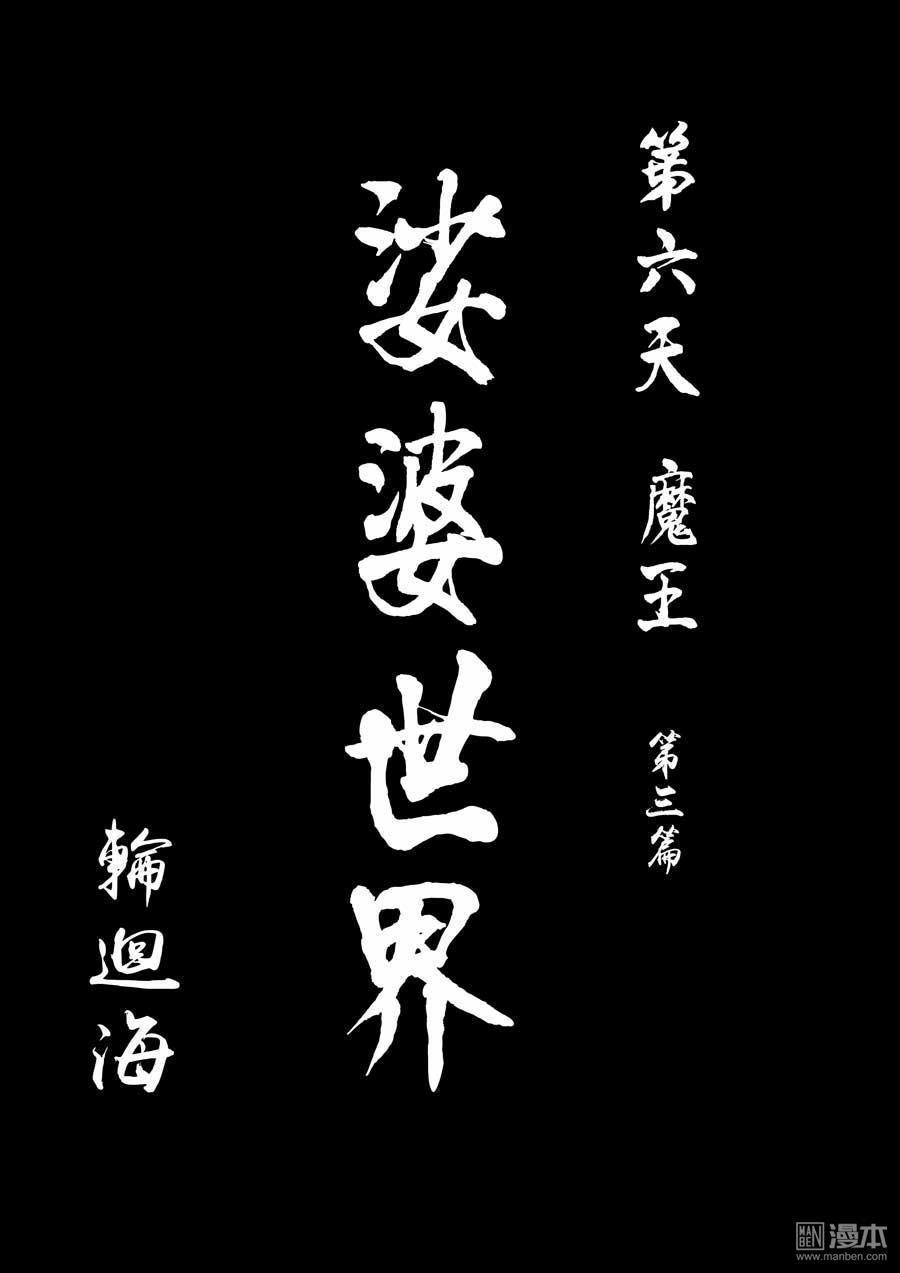 第六天 魔王 第三篇
娑婆世界
輪迴海
MANBEN 漫本
www.manben.com